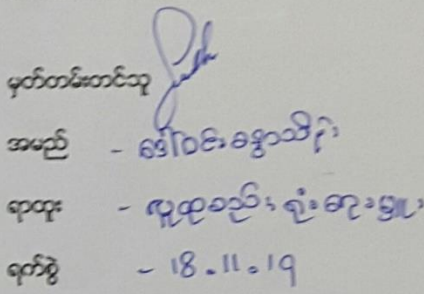 မှတ်တမ်းတင်သူ
အမည် - ဒေါ်ဝင်းစန္ဒာသိင်း
ရာထူး - လူထုစည်းရုံးရေးမှူး
ရက်စွဲ - 18.11.19